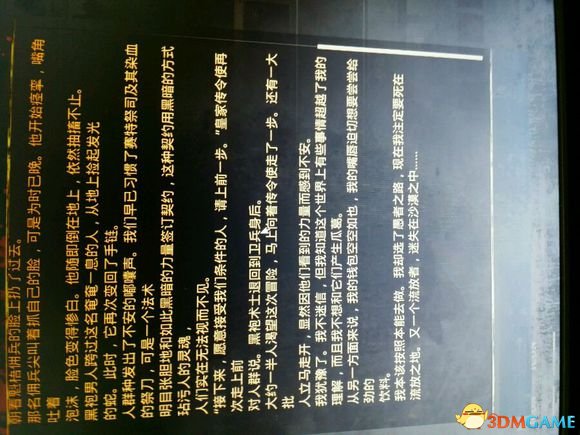 朝着魁梧佣兵的脸上扔了过去。
那名佣兵尖叫着抓自己的脸，可是为时已晚。他开始痉挛，嘴角
吐着
泡沫，脸色变得惨白。他随即倒在地上，依然抽搐不止。
黑袍男人跨过这名奄奄一息的人，从地上捡起发光
的蛇。此时，它再次变回了手链。
人群种发出了不安的嘟囔声。我们早已习惯了赛特祭司及其染血
的祭刀，可是一个法术
明目张胆地和如此黑暗的力量签订契约，这种契约用黑暗的方式
玷污人的灵魂，
人们实在无法视而不见。
“接下来，愿意接受我们条件的人，请上前一步。”皇家传令使再
次走上前
对人群说。黑袍术士退回到卫兵身后。
大约一半人渴望这次冒险，马上向着传令使走了一步。还有一大
批
人立马走开，显然因他们看到的力量而感到不安。
我犹豫了。我不迷信，但我知道这个世界上有些事情超越了我的
理解，而且我不想和它们产生瓜葛。
从另一方面来说，我的钱包空空如也，我的嘴唇迫切想要尝尝给
劲的
饮料。
我本该按照本能去做。我却选了愚者之路，现在我注定要死在
流放之地。又一个流放者，迷失在沙漠之中……
3DMGAME